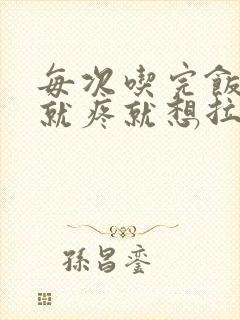 每次喫完飯
就疼就想,拉
孫昌銮